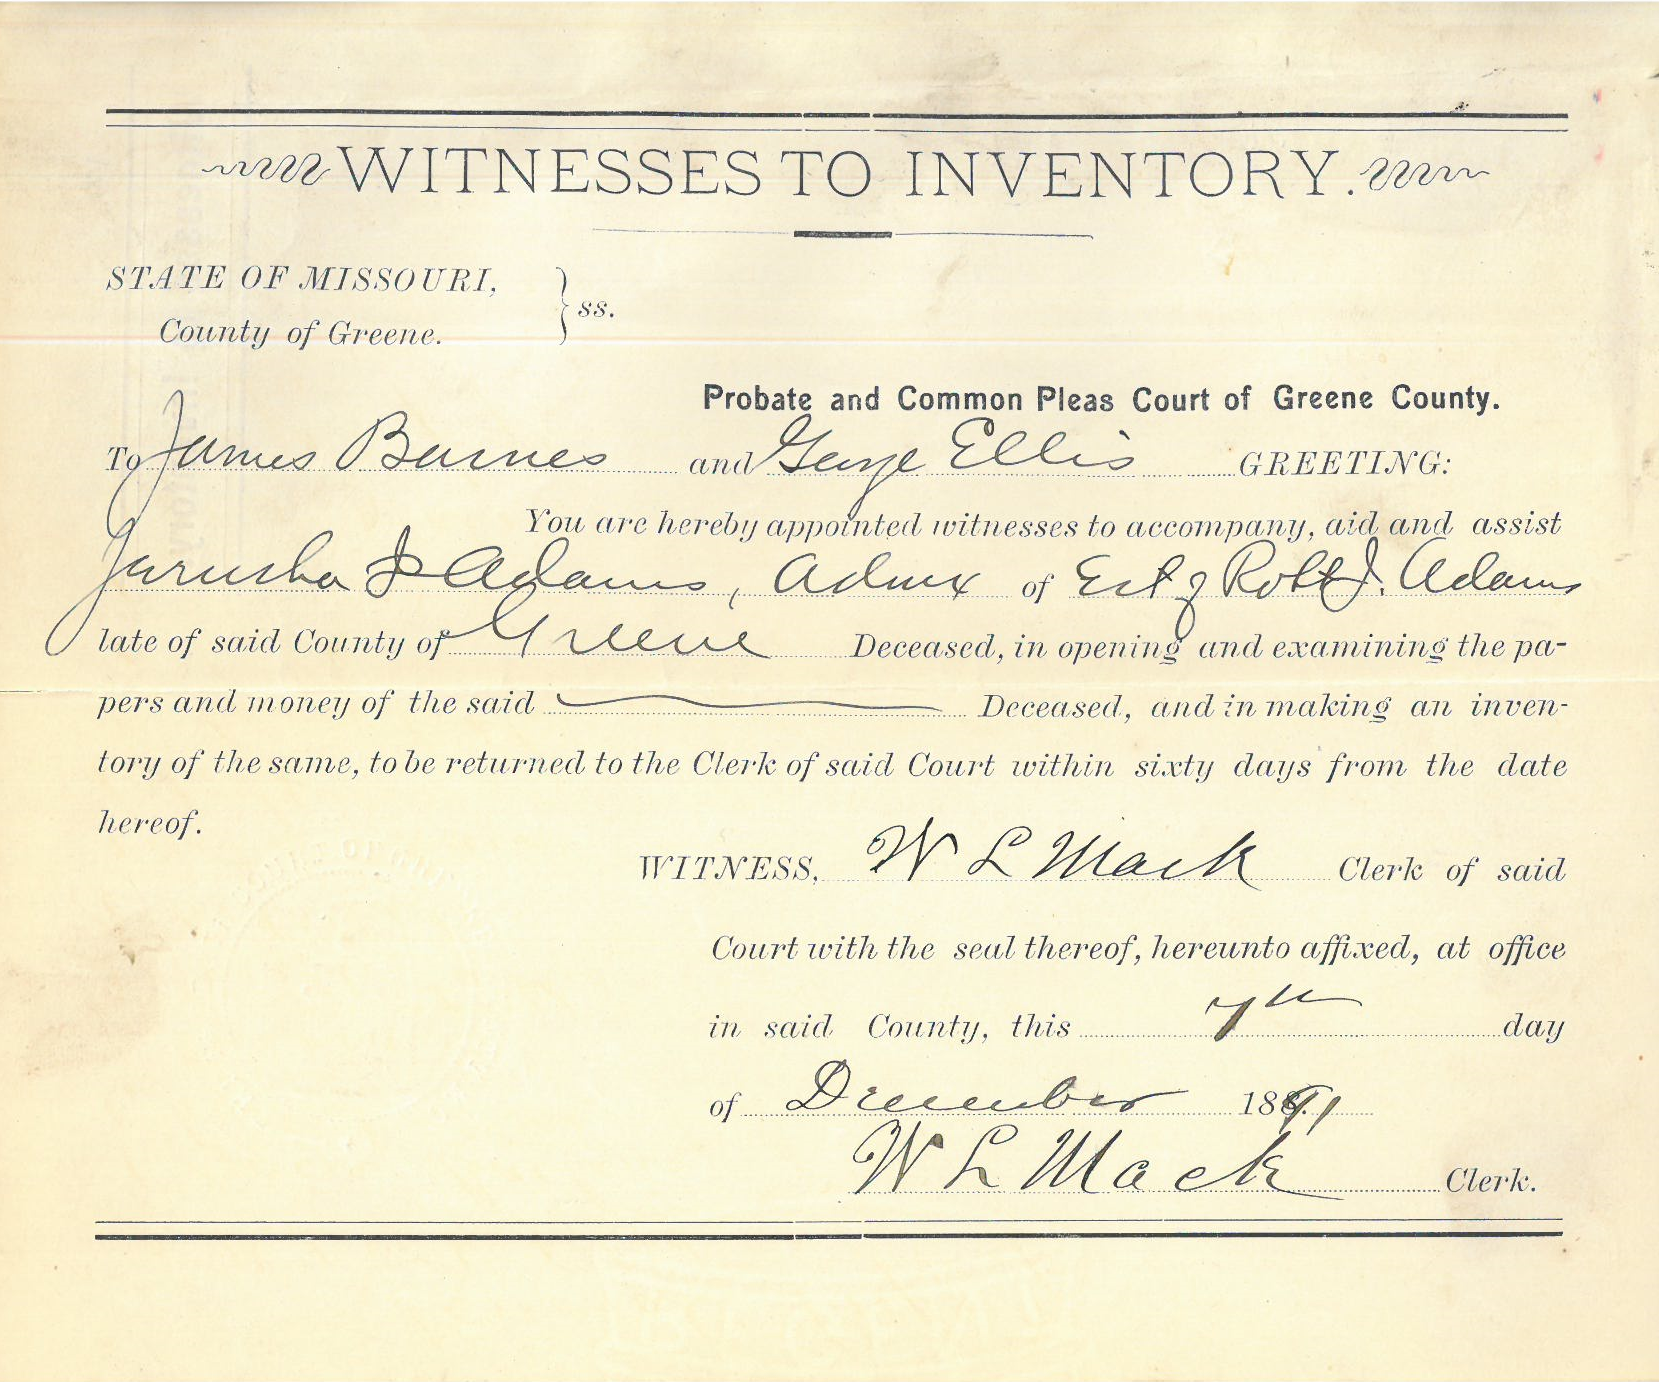 WITNESSES TO INVENTORY.
STATE OF MISSOURI,
County of Greene. } ss.
Probate and Common Pleas Court of Greene County.
To James Barnes and George Ellis GREETING:
You are hereby appointed witnesses to accompany, aid and assist
Jerusha J Adams, Admx of Est of Robt J. Adams
late of said County of Greene Deceased, in opening and examining the pa-
pers and money of the said Deceased, and in making an inven-
tory of the same, to be returned to the Clerk of said Court within sixty days from the date
hereof.
WITNESS, W L Mack Clerk of said
Court with the seal thereof, hereunto affixed, at office
in said County, this 7th day
of December 1891
W L Mack Clerk.